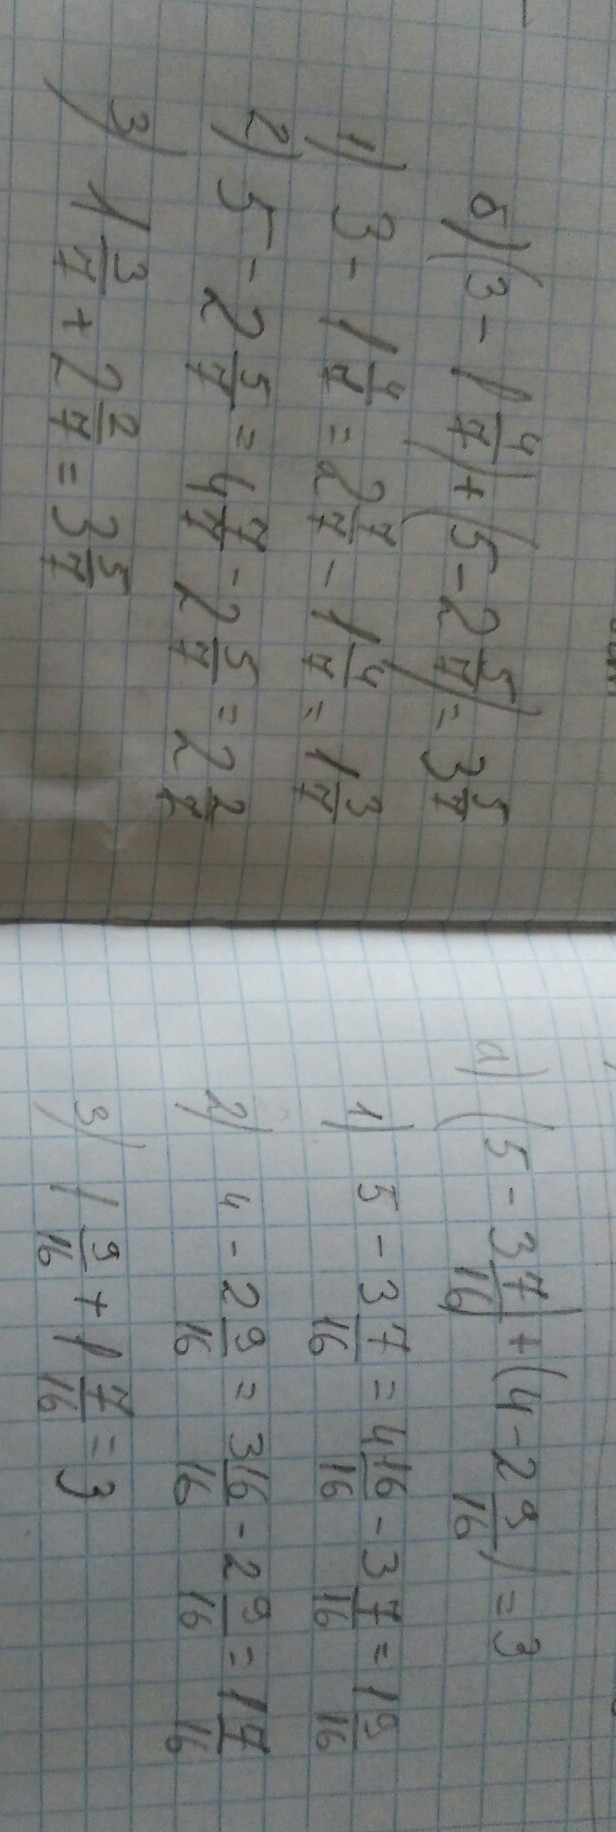 б) (3 - 1 4/7) + (5 - 2 5/7) = 3 5/7
1) 3 - 1 4/7 = 2 7/7 - 1 4/7 = 1 3/7
2) 5 - 2 5/7 = 4 7/7 - 2 5/7 = 2 2/7
3) 1 3/7 + 2 2/7 = 3 5/7
а) (5 - 3 7/16) + (4 - 2 9/16) = 3
1) 5 - 3 7/16 = 4 16/16 - 3 7/16 = 1 9/16
2) 4 - 2 9/16 = 3 16/16 - 2 9/16 = 1 7/16
3) 1 9/16 + 1 7/16 = 3